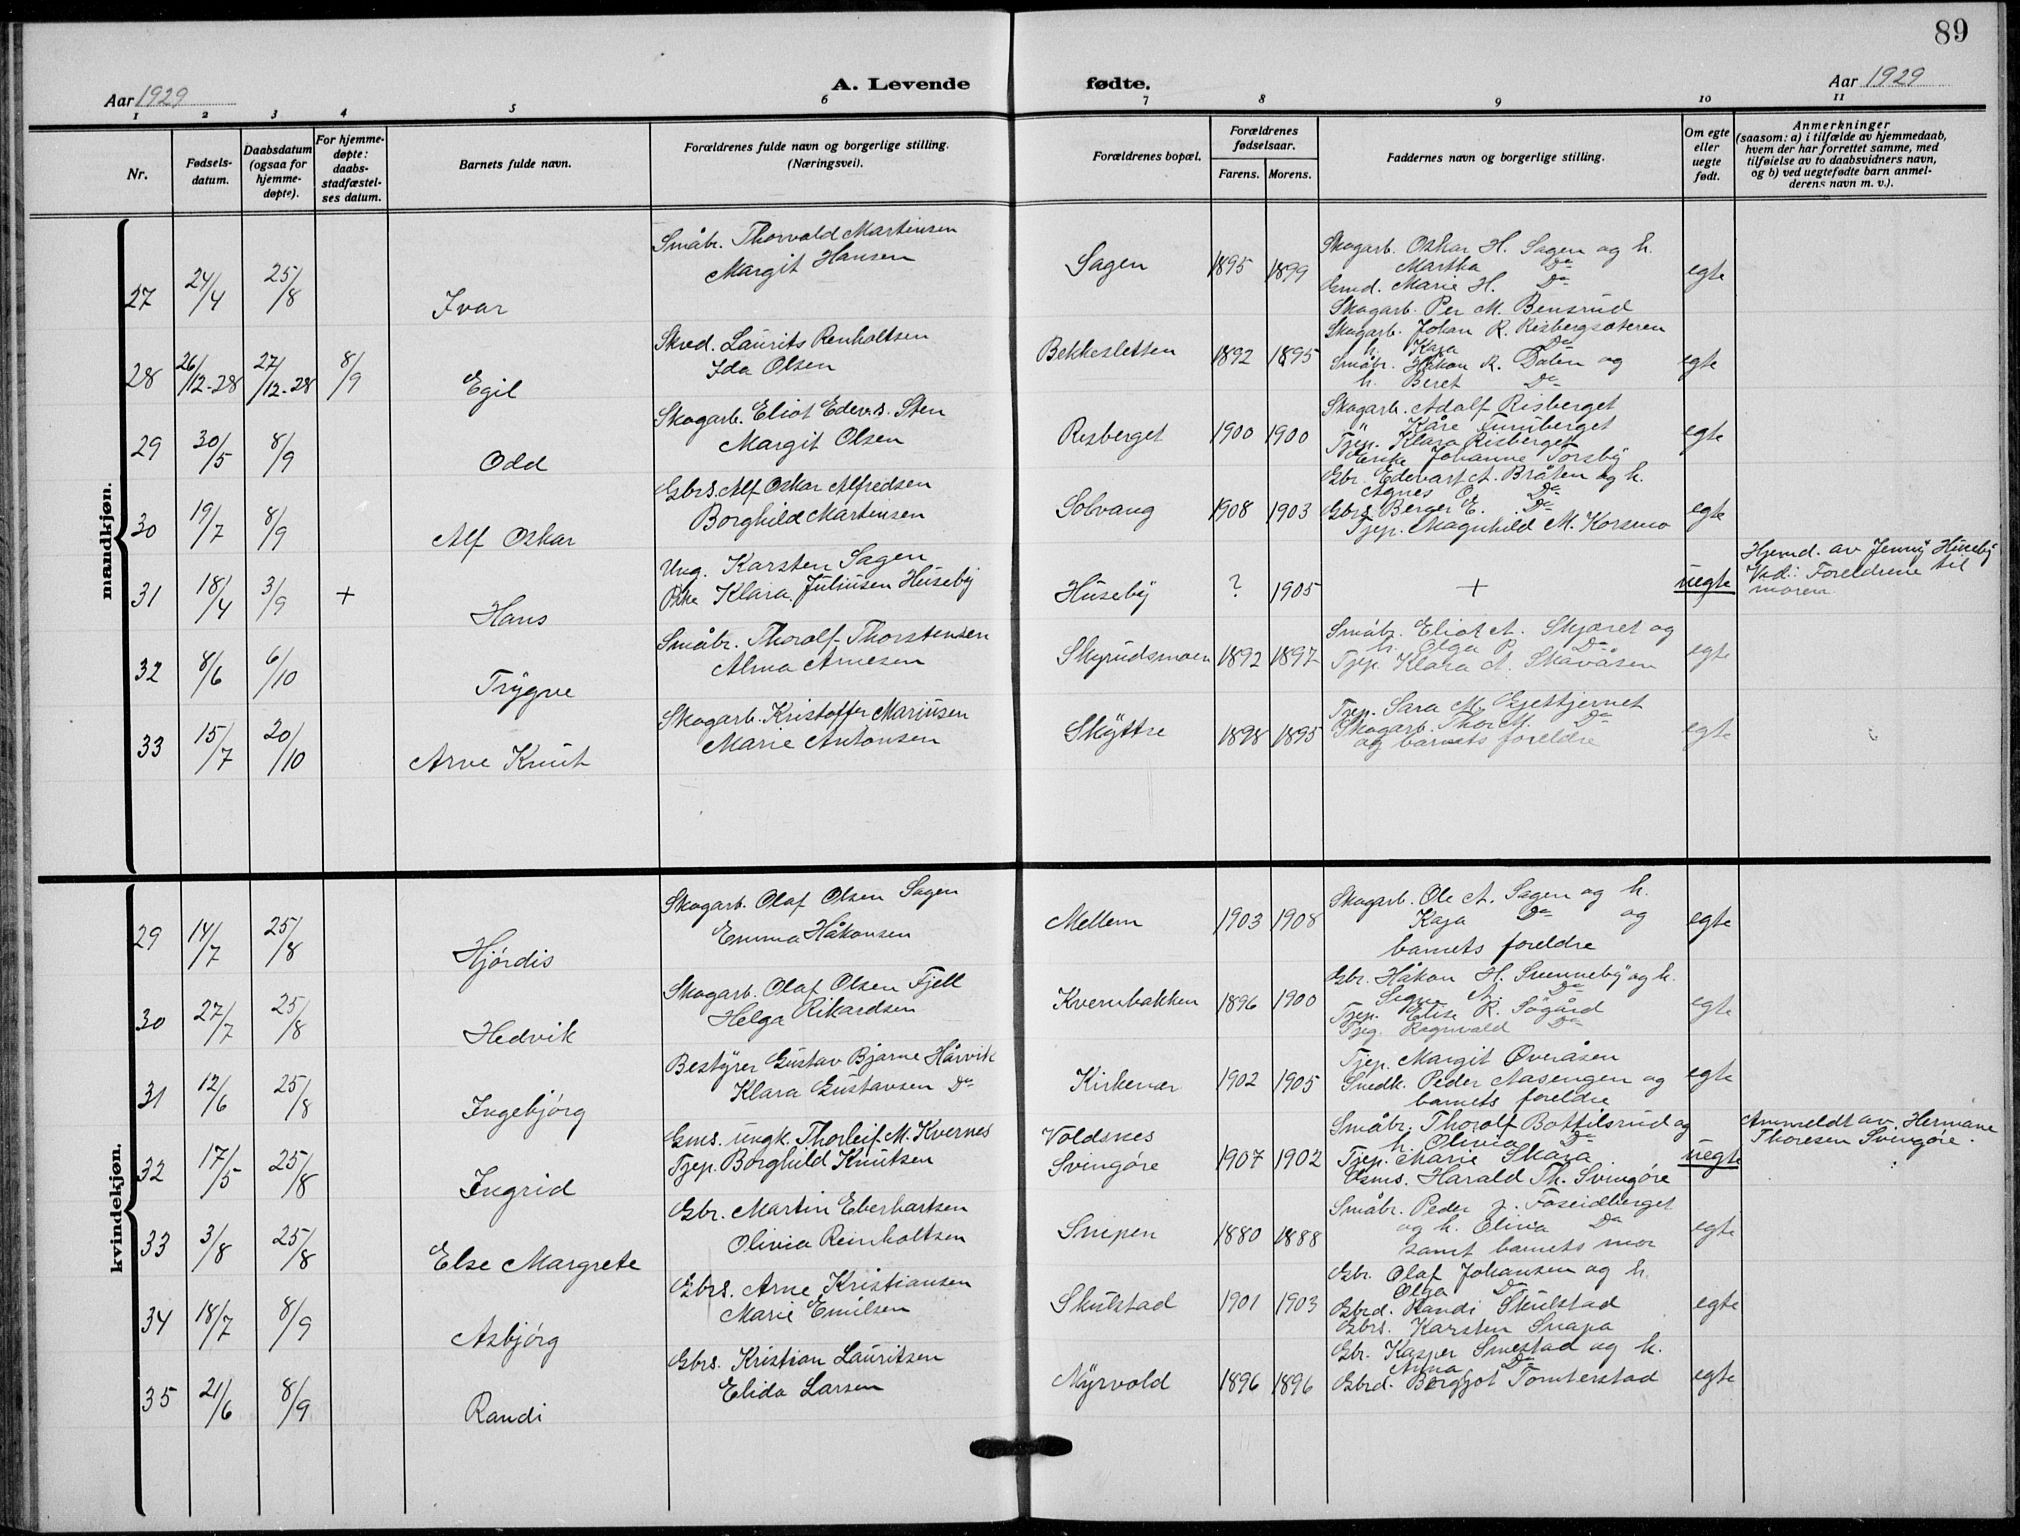 89
Aar 1929
A. Levende fødte.
Aar 1929
1 2 3 4 5 6 7 8 9 10 11
Nr.
Fødsels-
datum.
Daabsdatum
(ogsaa for
hjemme-
døpte).
For hjemme-
døpte:
daabs-
stadfæstel-
ses datum.
Barnets fulde navn.
Forældrenes fulde navn og borgerlige stilling.
(Næringsvei).
Forældrenes bopæl.
Forældrenes
fødselsaar.
Farens. Morens.
Faddernes navn og borgerlige stilling.
Om egte
eller
uegte
født.
Anmerkninger
(saasom: a) i tilfælde av hjemmedaab,
hvem der har forrettet samme, med
tilføielse av to daabsvidners navn,
og b) ved uegtefødte barn anmel-
derens navn m. v.).
mandkjøn.
27 24/4 25/8 Ivar
Småbr. Thorvald Martinsen
Margit Hansen
Sagen 1895 1899
Skogarb. Oskar H. Sagen og h.
Martha Do
Gmd. Marie H. Do
Skogarb. Per M. Bensrud
egte
28 26/12-28 27/12-28 8/9 Egil
Skred. Laurits Renholtsen
Ida Olsen
Bekkesletten 1892 1895
Skogarb. Johan R. Risbergsæteren
h. Kaja Do
Småbr. Håkon R. Dalen og
h. Beret Do
egte
29 30/5 8/9 Odd
Skogarb. Eliot Edev.s. Sten
Margit Olsen
Risberget 1900 1900
Skogarb. Adolf Risberget
" Kåre Furuberget
Tjep. Klara Risberget
Enke Johanne Torsby
egte
30 19/7 8/9 Alf Oskar
Gbrs. Alf Oskar Alfredsen
Borghild Martinsen
Solvang 1908 1903
Gbr. Edevart A. Bråten og h.
Agnes O. Do
Gbrs. Berger E. Do
Tjep. Magnhild M. Korsmo
egte
31 18/4 3/9 + Hans
Ung. Karsten Sagen
Pike Klara Juliusen Huseby
Huseby ? 1905
+
uegte
Hjemd. av Jenny Huseby
Vid.: Foreldrene til
moren.
32 8/6 6/10 Trygve
Småbr. Thoralf Thorstensen
Alma Arnesen
Skyrudsmoen 1892 1897
Småbr. Eliot A. Skjæret og
h. Olga P. Do
Tjep. Klara A. Skavåsen
egte
33 15/7 20/10 Arve Knut
Skogarb. Kristoffer Mariusen
Marie Antonsen
Skyttre 1898 1895
Tjep. Sara M. Gjettjernet
Skogarb. Thor M. Do
og barnets foreldre
egte
kvindekjøn.
29 14/7 25/8 Hjørdis
Skogarb. Olaf Olsen Sagen
Emma Håkonsen
Mellem 1903 1908
Skogarb. Ole A. Sagen og h.
Kaja Do og
barnets foreldre
egte
30 27/7 25/8 Hedvik
Skogarb. Olaf Olsen Fjell
Helga Rikardsen
Kvernbakken 1896 1900
Gbr. Håkon H. Sunneby og h.
Signe A. Do
Tjep. Elise R. Søgård
Tjeg. Ragnvald Do
egte
31 12/6 25/8 Ingebjørg
Bestyrer Gustav Bjarne Hårvik
Klara Gustavsen Do
Kirkenær 1902 1905
Tjep. Margit Øveråsen
Snedk. Peder Aasengen og
barnets foreldre
egte
32 17/5 25/8 Ingrid
Gms. ungk. Thorleif M. Kvernes
Tjep. Borghild Knutsen
Voldsnes
Svingøre 1907 1902
Småbr. Thoralf Bottilsrud og
h. Olivia Do
Tjep. Marie Skara
Gms. Harald Th. Svingøre
uegte
Anmeldt av Hermane
Thoresen Svingøre.
33 3/8 25/8 Else Margrete
Gbr. Martin Eberhartsen
Olivia Reinholtsen
Snipen 1880 1888
Småbr. Peder J. Foseidberget
og h. Olivia Do
samt barnets mor
egte
34 18/7 8/9 Asbjørg
Gbrs. Arne Kristiansen
Marie Emilsen
Skulstad 1901 1903
Gbr. Olaf Johansen og h.
Olga Do
Gbrd. Randi Skulstad
Gbrs. Karsten Snapa
egte
35 21/6 8/9 Randi
Gbrs. Kristian Lauritsen
Elida Larsen
Myrvold 1896 1896
Gbr. Kasper Smestad og h.
Anna Do
Gbrd. Bergljot Tomterstad
egte